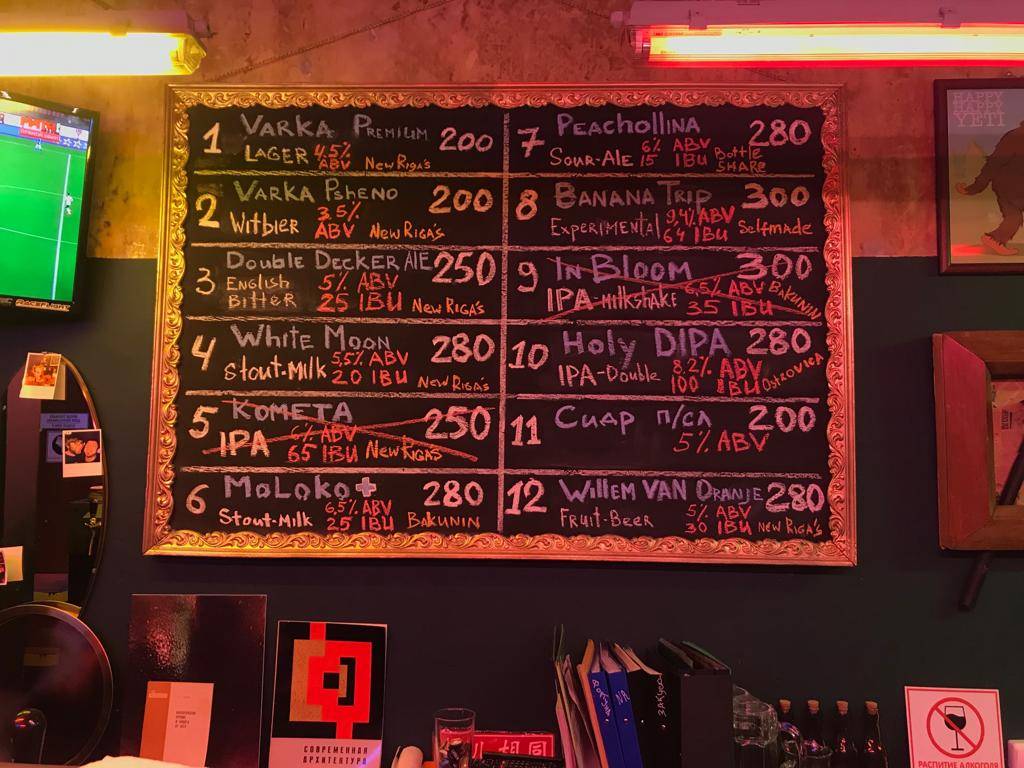 1 VARKA PREMIUM 200
LAGER 4,5% ABV NEW RIGA'S
2 VARKA PSHENO 200
WITBIER 3,5% ABV NEW RIGA'S
3 DOUBLE DECKER ALE 250
ENGLISH BITTER 5% ABV 25 IBU NEW RIGA'S
4 WHITE MOON 280
STOUT-MILK 5,5% ABV 20 IBU NEW RIGA'S
5 KOMETA 250
IPA 6% ABV 65 IBU NEW RIGA'S
6 MOLOKO+ 280
STOUT-MILK 6,5% ABV 25 IBU BAKUNIN
7 PEACHOLLINA 280
SOUR-ALE 6% 15 IBU BOTTLE SHARE
8 BANANA TRIP 300
EXPERIMENTAL 9,4% ABV 64 IBU SELFMADE
9 IN BLOOM 300
IPA-MILKSHAKE 6,5% ABV 35 IBU BAKUNIN
10 HOLY DIPA 280
IPA-DOUBLE 8,2% ABV 100 IBU OSTROVICA
11 СИДР П/СЛ 200
5% ABV
12 WILLEM VAN ORANJE 280
FRUIT-BEER 5% ABV 30 IBU NEW RIGA'S
HAPPY
HAPPY
YETI
СОВРЕМЕННАЯ
АРХИТЕКТУРА
РАСПИТИЕ АЛКОГОЛЯ